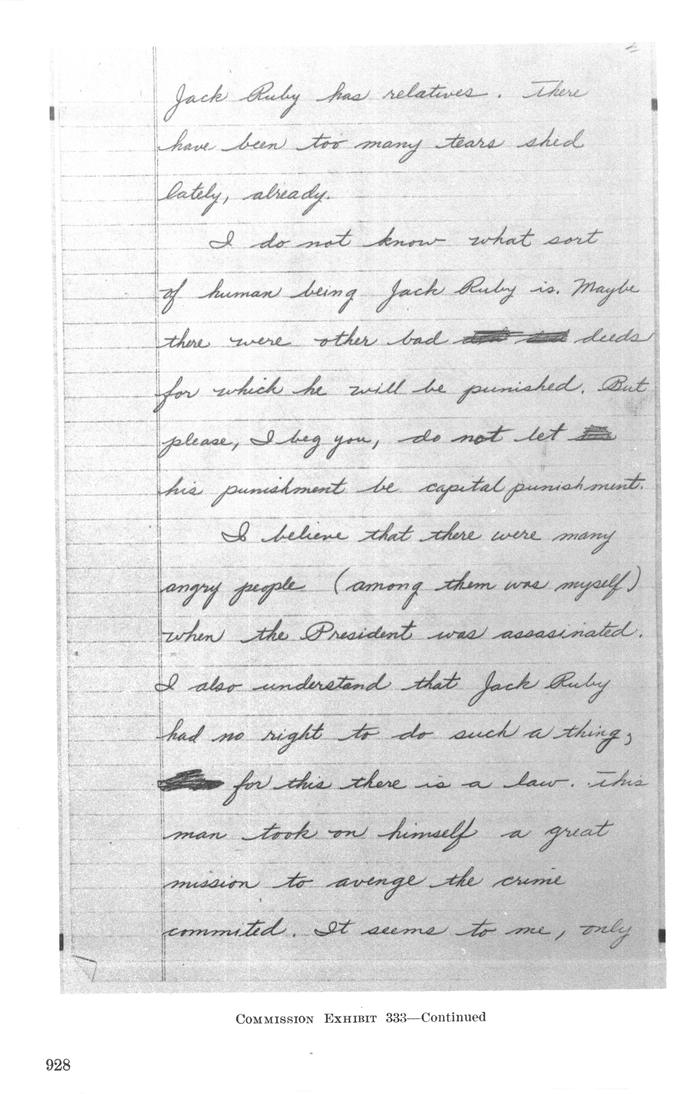 2
Jack Ruby has relatives. There
have been too many tears shed
lately, already.
I do not know what sort
of human being Jack Ruby is. Maybe
there were other bad deeds
for which he will be punished. But
please, I beg you, do not let
his punishment be capital punishment.
I believe that there were many
angry people (among them was myself)
when the President was assasinated.
I also understand that Jack Ruby
had no right to do such a thing,
for this there is a law. This
man took on himself a great
mission to avenge the crime
commited. It seems to me, only
COMMISSION EXHIBIT 333—Continued
928